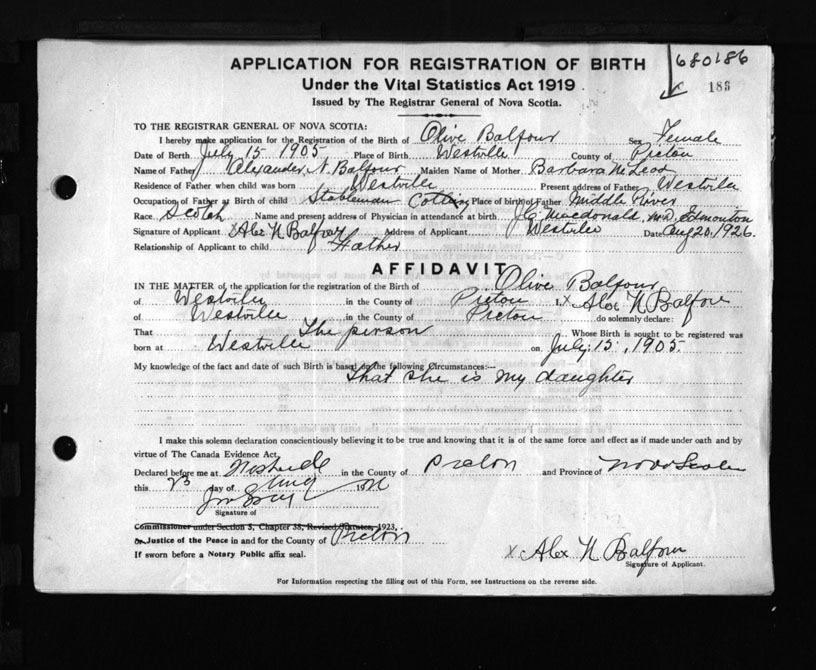 APPLICATION FOR REGISTRATION OF BIRTH
680186
Under the Vital Statistics Act 1919
186
Issued by The Registrar General of Nova Scotia.
TO THE REGISTRAR GENERAL OF NOVA SCOTIA:
I hereby make application for the Registration of the Birth of Olive Balfour Sex Female
Date of Birth July 15 1905 Place of Birth Westville County of Pictou
Name of Father Alexander N. Balfour Maiden Name of Mother Barbara McLeod
Residence of Father when child was born Westville Present address of Father Westville
Occupation of Father at Birth of child Stableman Place of birth of Father Middle River
Race Scotch Name and present address of Physician in attendance at birth J C Macdonald, M.D. Edmonton
Signature of Applicant X Alex N Balfour Address of Applicant Westville Date Aug 20. 1926.
Relationship of Applicant to child Father
AFFIDAVIT
IN THE MATTER of the application for the registration of the Birth of Olive Balfour
of Westville in the County of Pictou I, X Alex N Balfour
of Westville in the County of Pictou do solemnly declare:
That The person Whose Birth is sought to be registered was
born at Westville on July 15, 1905.
My knowledge of the fact and date of such Birth is based on the following Circumstances:—
That she is my daughter
I make this solemn declaration conscientiously believing it to be true and knowing that it is of the same force and effect as if made under oath and by
virtue of The Canada Evidence Act.
Declared before me at Westville in the County of Pictou and Province of Nova Scotia
this day of Aug 19
Signature of
Commissioner under Section 5, Chapter 38, Revised Statutes, 1923,
or Justice of the Peace in and for the County of Pictou
If sworn before a Notary Public affix seal.
X Alex N Balfour
Signature of Applicant.
For Information respecting the filling out of this Form, see Instructions on the reverse side.